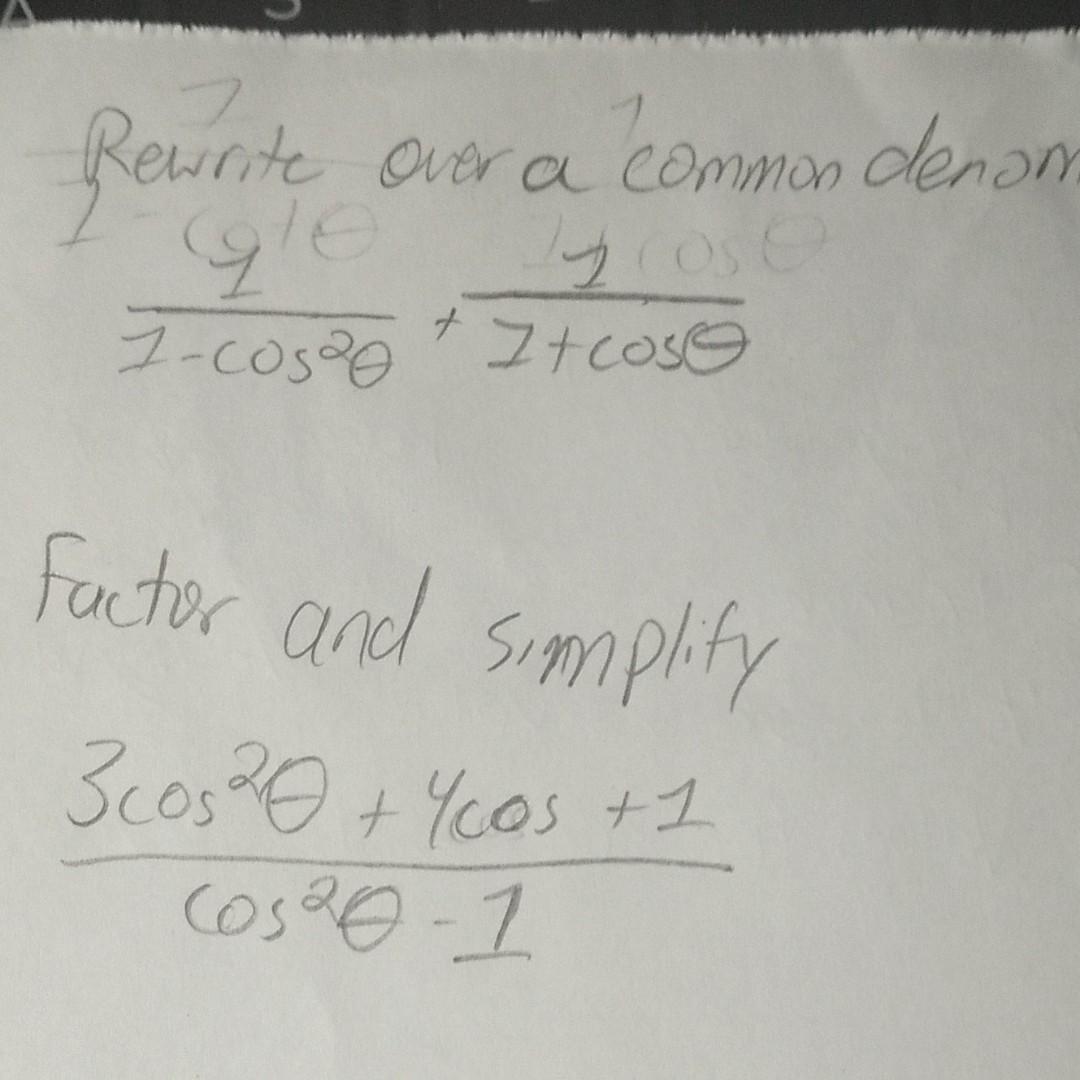 Rewrite over a common denom
1 1
1-cos²θ + 1+cosθ
Factor and simplify
3cos²θ + 4cos +1
cos²θ -1